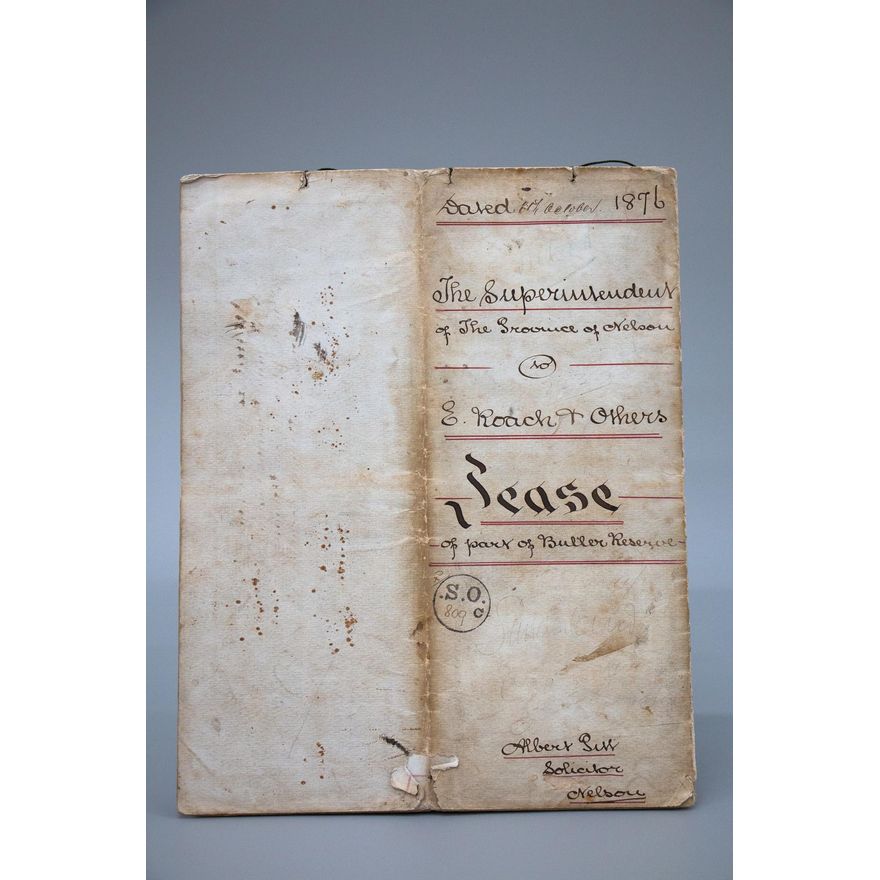 Dated 6th October 1876
The Superintendent
of The Province of Nelson
to
E. Roach & Others
Lease
of part of Buller Reserve
.S.O.
809 c
Albert Pitt
Solicitor
Nelson